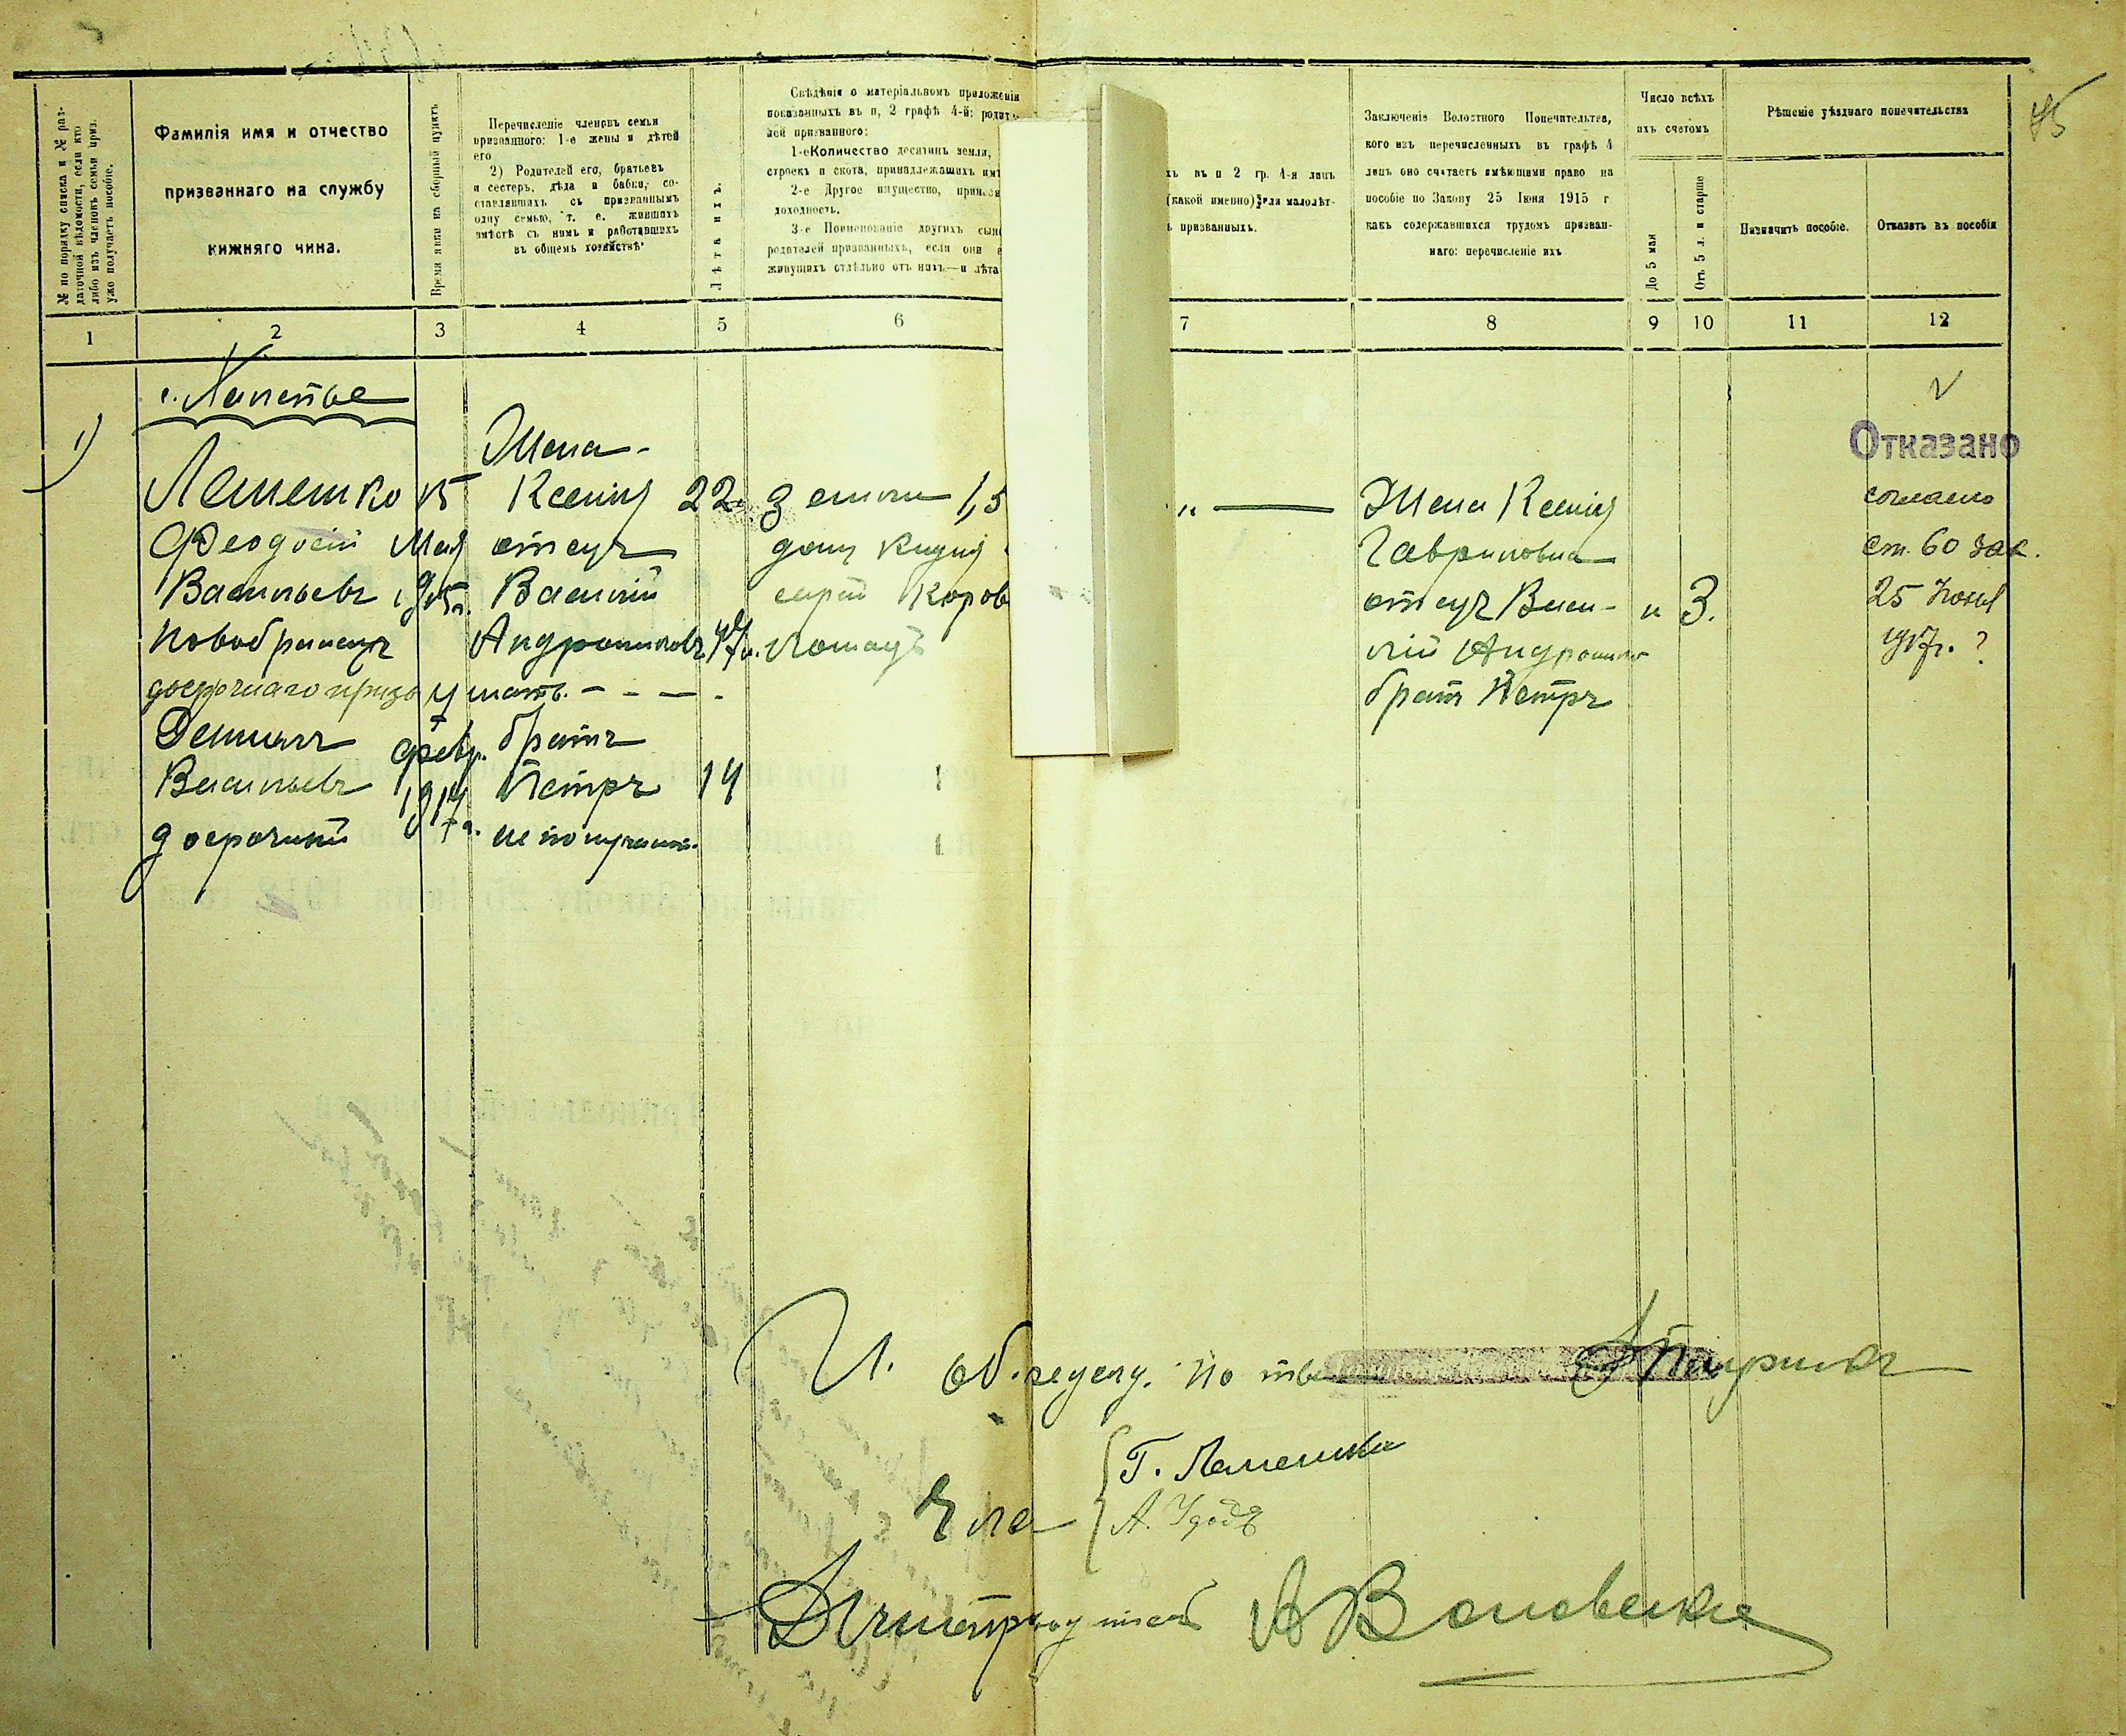 45
№ по порядку списка и № раз-
даточной вѣдомости, если кто
либо изъ членовъ семьи приз.
уже получаетъ пособіе.
Фамилія имя и отчество
призваннаго на службу
нижняго чина.
Время явки на сборный пунктъ
Перечисленіе членовъ семьи
призваннаго: 1-е жены и дѣтей
его
2) Родителей его, братьевъ
и сестеръ, дѣда и бабки, со-
ставлявшихъ съ призваннымъ
одну семью, т. е. жившихъ
вмѣстѣ съ нимъ и работавшихъ
въ общемъ хозяйствѣ
Лѣта ихъ.
Свѣдѣнія о матеріальномъ приложенія
показанныхъ въ п, 2 графѣ 4-й: родит
лей призваннаго:
1-е Количество десятинъ земли,
строекъ и скота, принадлежашихъ им
2-е Другое имущество, принося
доходность.
3-е Поименованіе другихъ сын
родателей призванныхъ, если они
живущихъ отдѣльно отъ нихъ—и лѣта
хъ въ п 2 гр. 4-я лицъ
(какой именно) для малолѣт-
ъ призванныхъ.
Заключеніе Волостного Попечительтва,
кого изъ перечисленныхъ въ графѣ 4
лицъ оно считаетъ имѣющими право на
пособіе по Закону 25 Іюня 1915 г
какъ содержавшихся трудомъ призван-
наго: перечисленіе ихъ
Число всѣхъ
ихъ счетомъ
До 5 мая
Отъ 5 л. и старше
Рѣшеніе уѣзднаго попечительства
Назначить пособіе.
Отказать въ пособіи
1 2 3 4 5 6 7 8 9 10 11 12
1)
Лемешко
Феодосій
Васильевъ
новобранецъ
Демьянъ
Васильевъ
досрочный
15
Мая
1915г.
февр.
1917г.
Жена -
Ксенія 22
отецъ
Василій
Андрониковъ 47л.
мать. - - - -
братъ
Петръ 14
земли 1,5
сарай Коров
лошадь
" —
Жена Ксенія
Гавриловна
отецъ Васи-
лій Андроник
братъ Петръ
" 3.
Отказано
согласно
ст. 60 зак.
25 Іюня
1917г. ?
И. об.
Г. Лемешко
А. Удодъ